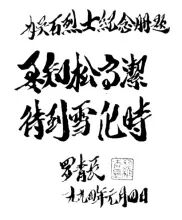 为吴石烈士紀念册题
要知松高潔
待到雪化時
罗青長
一九九四年元月四日